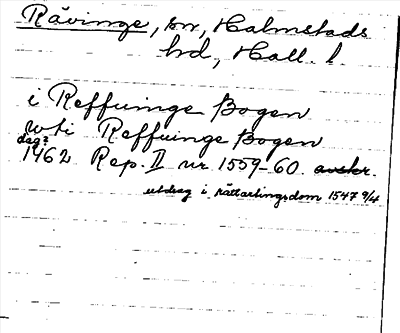 Rävinge, sn, Halmstads
hd, Hall. l.
i Reffuinge Bogen
wti Reffuinge Bogen
dag?
1462 Rep. II nr 1559-60. avskr.
utdrag i rättartingsdom 1547 9/4